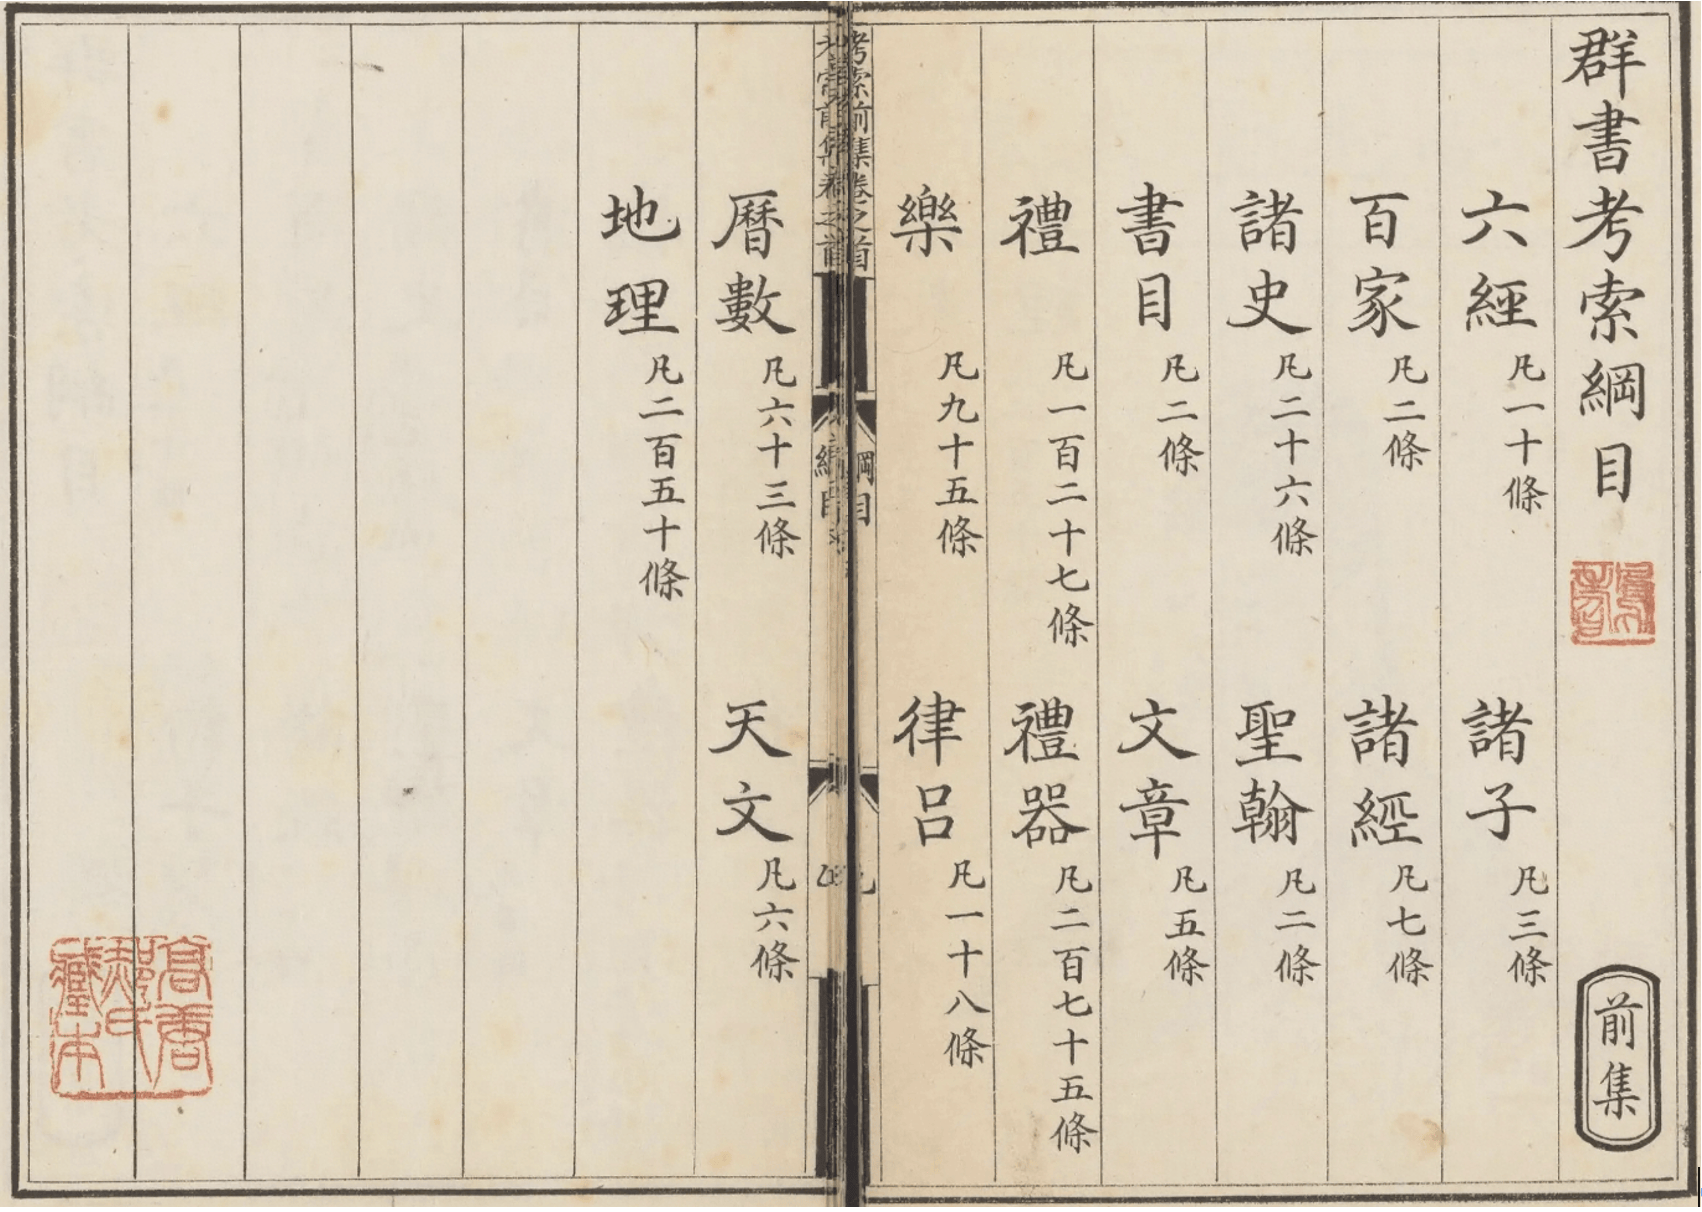 群書考索綱目
前集
六經 凡一十條 諸子 凡三條
百家 凡二條 諸經 凡七條
諸史 凡二十六條 聖翰 凡二條
書目 凡二條 文章 凡五條
禮 凡一百二十七條 禮器 凡二百七十五條
樂 凡九十五條 律呂 凡一十八條
考索前集卷之首
綱目
曆數 凡六十三條 天文 凡六條
地理 凡二百五十條
高唐
郝氏
藏本